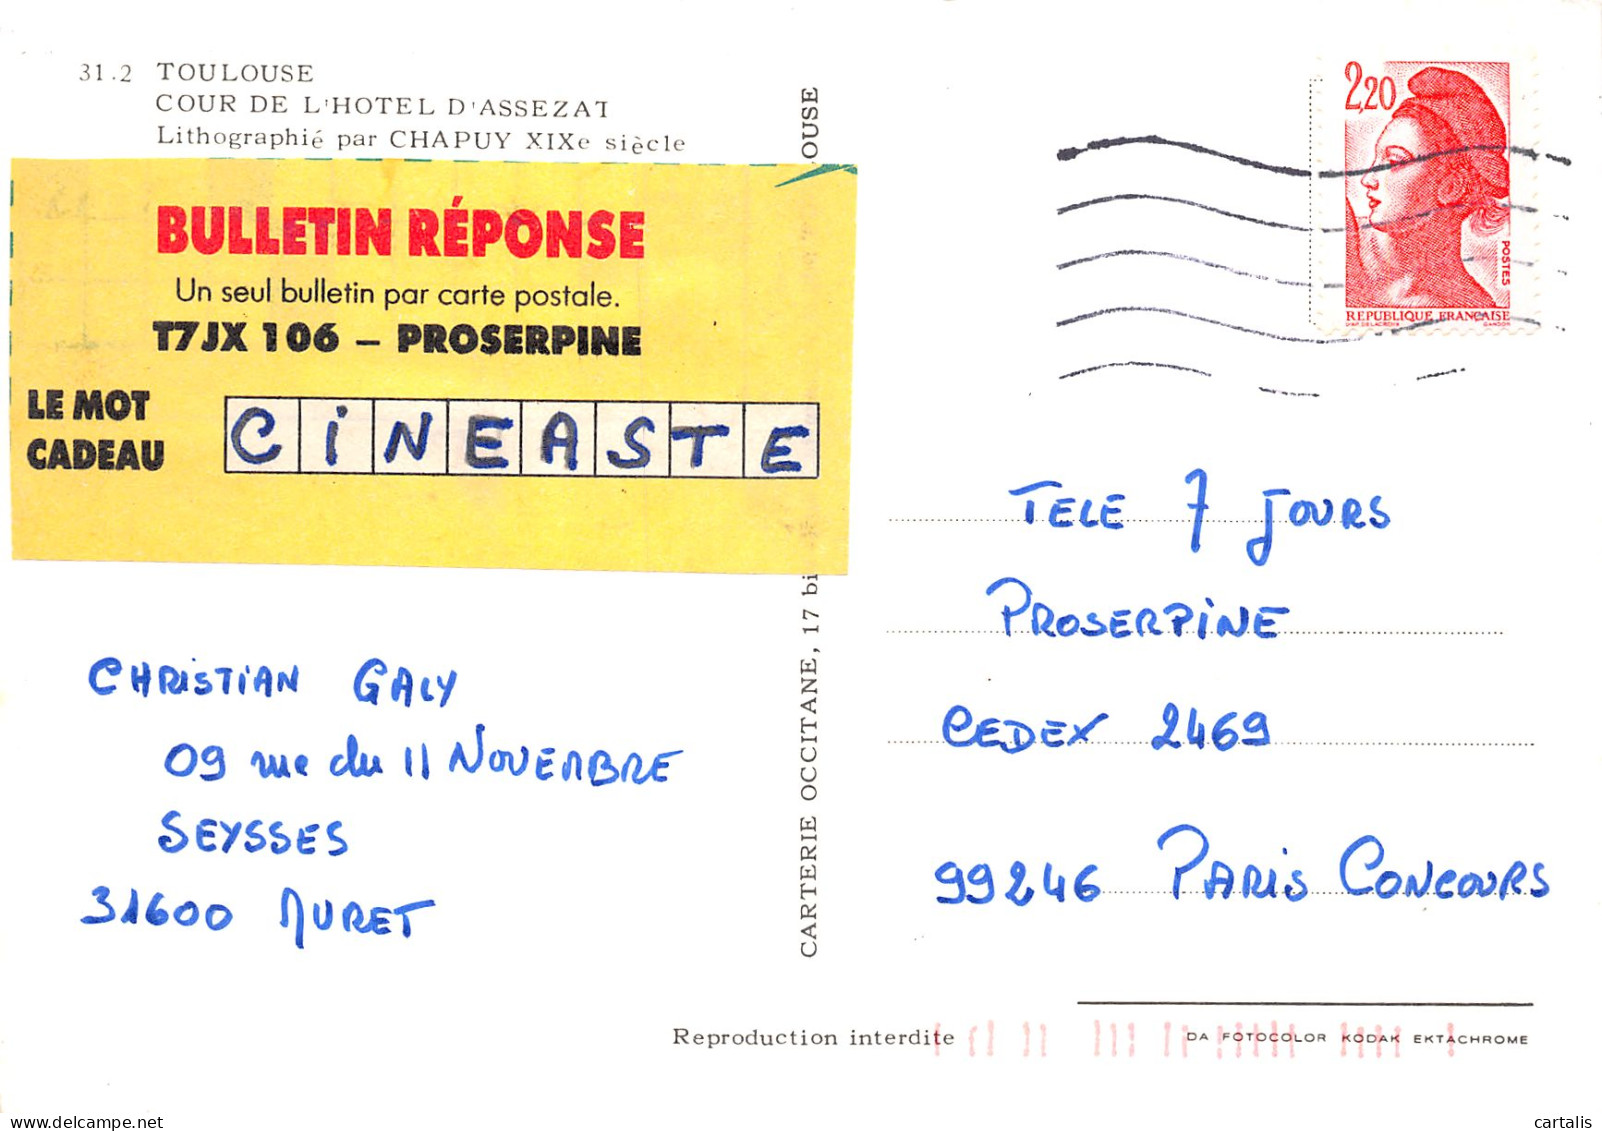 31.2 TOULOUSE
COUR DE L'HOTEL D'ASSEZAT
Lithographié par CHAPUY XIXe siècle
BULLETIN RÉPONSE
Un seul bulletin par carte postale.
T7JX 106 – PROSERPINE
LE MOT
CADEAU
CiNEASTE
CHRiSTiAN GALY
09 rue du 11 NOVEMBRE
SEYSSES
31600 MURET
CARTERIE OCCITANE, 17 bi
OUSE
2,20
POSTES
REPUBLIQUE FRANÇAISE
D'AP. DELACROIX GANDON
TELE 7 JOURS
PROSERPiNE
CEDEX 2469
99246 PARiS CONCOURS
Reproduction interdite
DA FOTOCOLOR KODAK EKTACHROME
cartalis